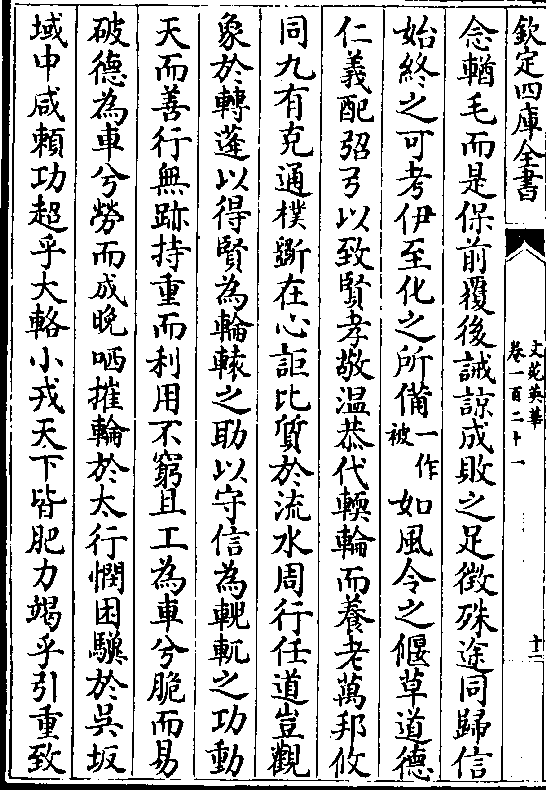 欽定四庫全書
文苑英華
卷一百二十一
十二
念輶毛而是保前覆後誡諒成敗之足徴殊途同歸信
始終之可考伊至化之所備一作被如風令之偃草道德
仁義配弨弓以致賢孝敬温恭代輭輪而養老萬邦攸
同九有克通樸斵在心詎比質於流水周行任道豈觀
象於轉蓬以得賢為輪轅之助以守信為輗軏之功動
天而善行無跡持重而利用不窮且工為車兮脆而易
破德為車兮勞而成晚哂摧輪於太行憫困驥於吳坂
域中咸頼功超乎大輅小戎天下皆肥力竭乎引重致